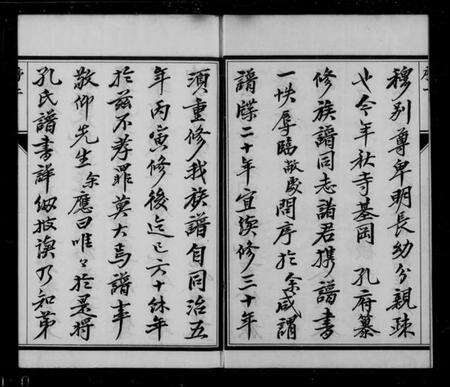 穆別尊卑明長幼分親疎
也今年秋寺基岡 孔府纂
修族譜同志諸君携譜書
一帙辱臨敝處問序於余咸謂
譜牒二十年宜續修三十年
須重修我族譜自同治五
年丙寅修後迄已六十餘年
於茲不孝罪莫大焉譜事
敬仰先生余應曰唯〻於是將
孔氏譜書詳細披誦乃知第